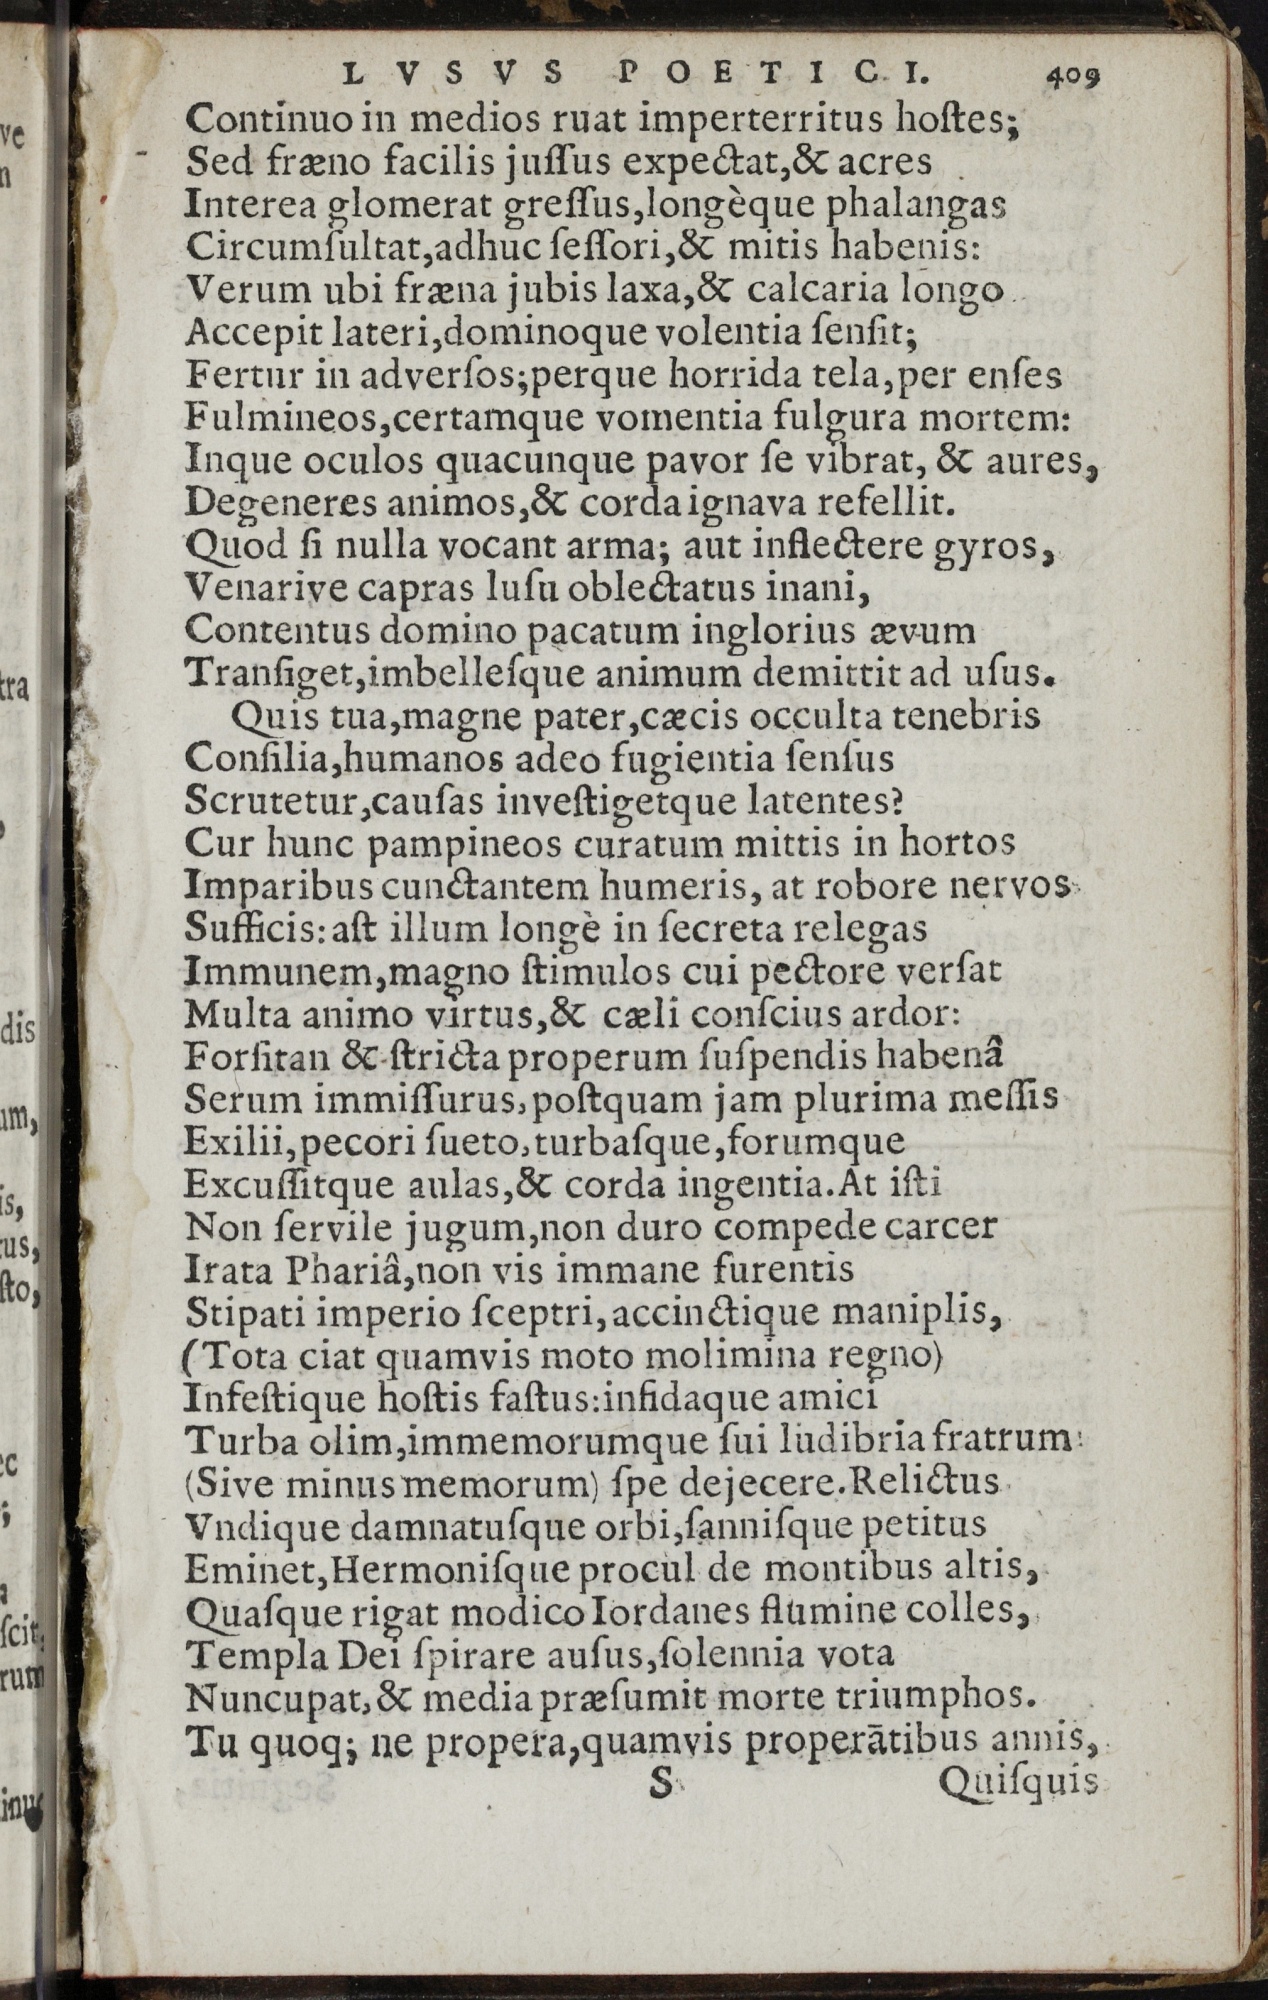 LVSVS POETICI. 409
Continuo in medios ruat imperterritus hoſtes;
Sed fræno facilis juſſus expectat,& acres
Interea glomerat greſſus,longèque phalangas
Circumſultat,adhuc ſeſſori,& mitis habenis:
Verum ubi fræna jubis laxa,& calcaria longo
Accepit lateri,dominoque volentia ſenſit;
Fertur in adverſos;perque horrida tela,per enſes
Fulmineos,certamque vomentia fulgura mortem:
Inque oculos quacunque pavor ſe vibrat, & aures,
Degeneres animos,& corda ignava refellit.
Quod ſi nulla vocant arma; aut inflectere gyros,
Venarive capras luſu oblectatus inani,
Contentus domino pacatum inglorius ævum
Tranſiget,imbelleſque animum demittit ad uſus.
Quis tua,magne pater,cæcis occulta tenebris
Conſilia,humanos adeo fugientia ſenſus
Scrutetur,cauſas inveſtigetque latentes?
Cur hunc pampineos curatum mittis in hortos
Imparibus cunctantem humeris, at robore nervos
Sufficis: aſt illum longè in ſecreta relegas
Immunem,magno ſtimulos cui pectore verſat
Multa animo virtus,& cæli conſcius ardor:
Forſitan & ſtricta properum ſuſpendis habenâ
Serum immiſſurus,poſtquam jam plurima meſſis
Exilii,pecori ſueto,turbaſque,forumque
Excuſſitque aulas,& corda ingentia.At iſti
Non ſervile jugum,non duro compede carcer
Irata Phariâ,non vis immane furentis
Stipati imperio ſceptri,accinctique maniplis,
(Tota ciat quamvis moto molimina regno)
Infeſtique hoſtis faſtus:infidaque amici
Turba olim,immemorumque ſui ludibria fratrum
(Sive minus memorum) ſpe dejecere.Relictus
Vndique damnatuſque orbi,ſanniſque petitus
Eminet,Hermoniſque procul de montibus altis,
Quaſque rigat modico Iordanes flumine colles,
Templa Dei ſpirare auſus,ſolennia vota
Nuncupat,& media præſumit morte triumphos.
Tu quoq; ne propera,quamvis properātibus annis,
S Quiſquis